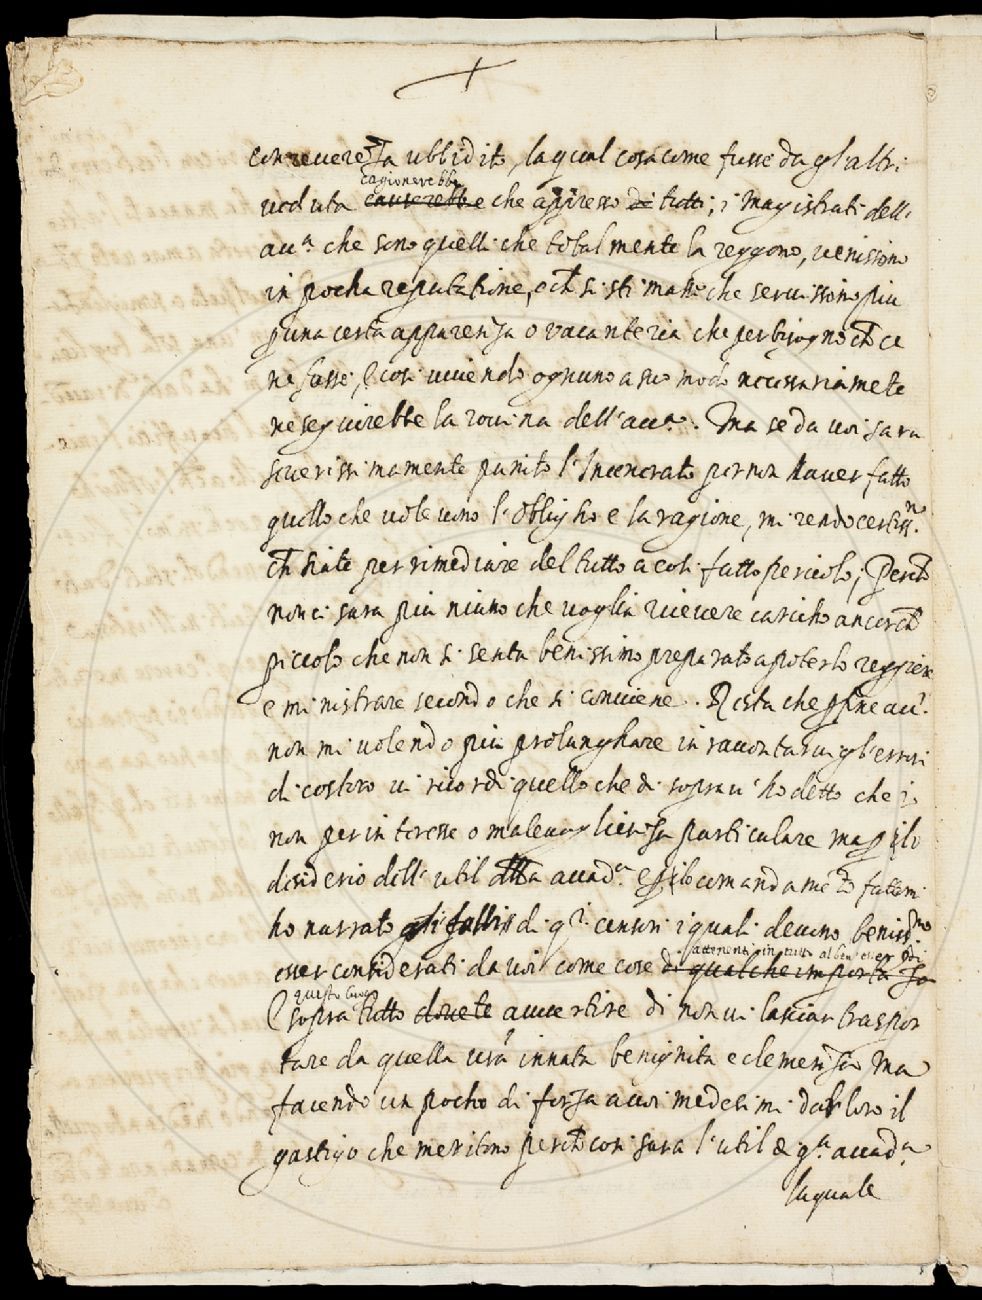 con reverenza ubbidito, la qual cosa come fusse da gl'altri
cagionerebbe
veduta causerebbe che appresso di tutti; i Magistrati dell'
acc.a che sono quelli che totalmente la reggono, venissino
in pocha reputatione, o ch si stimasse che servissino piu
p una certa apparenza o vacanteria che per bisogno ch ce
ne fusse, e cosi vivendo ognuno a suo modo necessariamete
ne seguirebbe la rovina dell'acc.a. Ma se da voi sara
severissimamente punito l'Incenerato per non haver fatto
quello che volevono l'obligho e la ragione, mi rendo certiss.no
ch siate per rimediare del tutto a cosi fatto pericolo; Perch
non ci sara piu niuno che voglia ricevere caricho ancorch
piccolo che non si senta benissimo preparato a poterlo reggiere
e ministrare secondo che si conviene. Resta che p fine acc.
non mi volendo piu prolunghare in raccontarvi gl'errori
di costoro vi ricordi quello che di sopra v'ho detto che io
non per interesse o malevoglienza particulare ma p il
desiderio dell'util della accad.a e p il comandameto fattomi
ho narrato gli falli di q.i censori i quali devono beniss.mo
attenenti in tutto al ben esser
esser considerati da voi come cose di qualche importaza
questo
E sopra tutto dovete avvertire di non vi lasciar traspor
tare da quella vra innata benignita e clemenza Ma
facendo un pocho di forza a voi medesimi dar loro il
gastigo che meritono perch cosi sara l'util di q.a accad.a
la quale